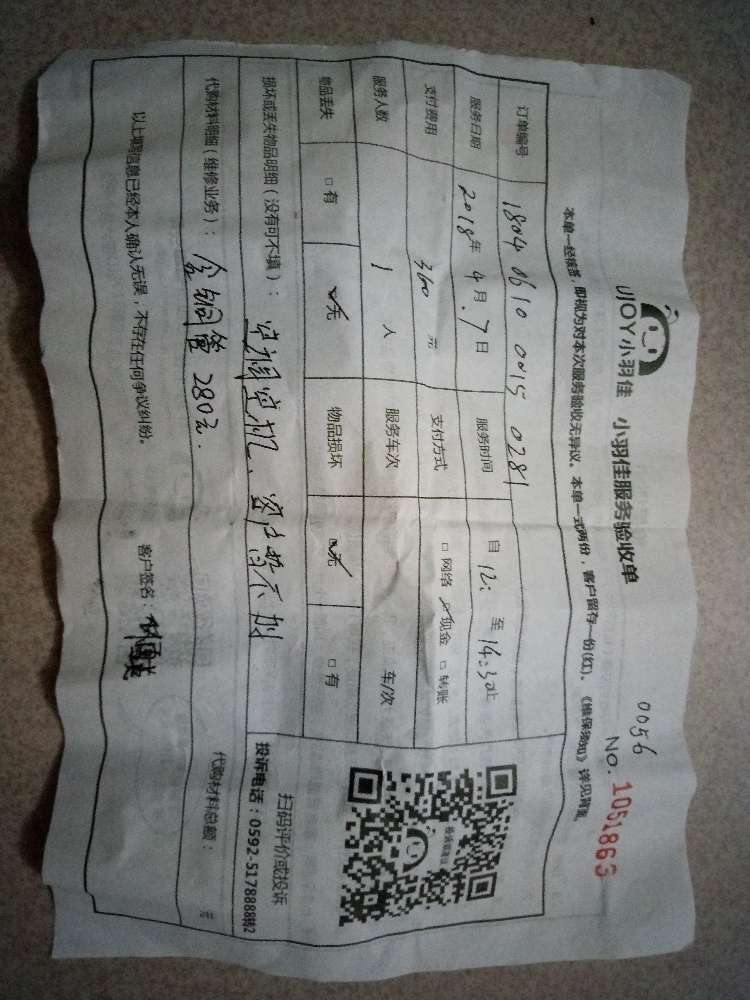 0056
NO. 1051863
JJOY小羽佳 小羽佳服务验收单
本单一经核签，即视为对本次服务验收无异议。本单一式两份，客户留存一份(红)。《维保须知》详见背面
订单编号 1804 0610 0015 0281
服务日期 2018年4月.7日 服务时间 自12: 至14:30止
支付费用 360元 支付方式 □网络 ☑现金 □转账
服务人数 1人 服务车次 车/次
物品丢失 □有 ☑无 物品损坏 ☑无 □有
扫码评价或投诉
投诉电话：0592-5178888转2
损坏或丢失物品明细（没有可不填）：
代购材料明细（维修业务）： 铜管 280元. 代购材料总额： 元
以上填写信息已经本人确认无误，不存在任何争议纠纷。 客户签名：